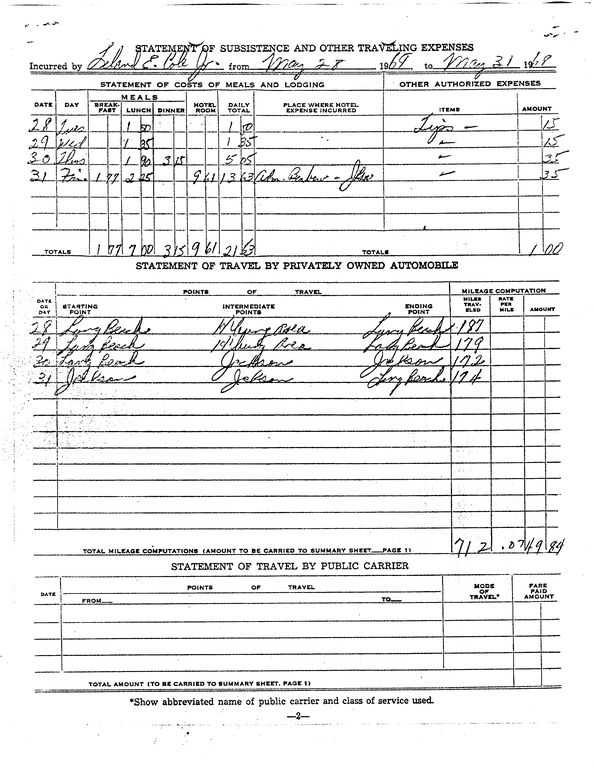 STATEMENT OF SUBSISTENCE AND OTHER TRAVELING EXPENSES
Incurred by Leland E. Cole Jr. from May 28 1968 to May 31 1968
STATEMENT OF COSTS OF MEALS AND LODGING OTHER AUTHORIZED EXPENSES
MEALS
DATE DAY BREAK-FAST LUNCH DINNER HOTEL ROOM DAILY TOTAL PLACE WHERE HOTEL EXPENSE INCURRED ITEMS AMOUNT
28 Tues 1 50 1 50 Tips — 15
29 Wed 1 35 1 35 15
30 Thurs 1 90 3 15 5 05 35
31 Fri. 1 77 2 25 9 61 13 63 35
TOTALS 1 77 7 00 3 15 9 61 21 63 TOTALS 1 00
STATEMENT OF TRAVEL BY PRIVATELY OWNED AUTOMOBILE
POINTS OF TRAVEL MILEAGE COMPUTATION
DATE OR DAY STARTING POINT INTERMEDIATE POINTS ENDING POINT MILES TRAV-ELED RATE PER MILE AMOUNT
28 Long Beach Area Long Beach 187
29 Long Beach Area Long Beach 179
30 Long Beach Jackson Jackson 172
31 Jackson Jackson Long Beach 174
TOTAL MILEAGE COMPUTATIONS (AMOUNT TO BE CARRIED TO SUMMARY SHEET—PAGE 1) 712 .07 49 84
STATEMENT OF TRAVEL BY PUBLIC CARRIER
DATE POINTS OF TRAVEL MODE OF TRAVEL* FARE PAID AMOUNT
FROM— TO—
TOTAL AMOUNT (TO BE CARRIED TO SUMMARY SHEET, PAGE 1)
*Show abbreviated name of public carrier and class of service used.
—2—